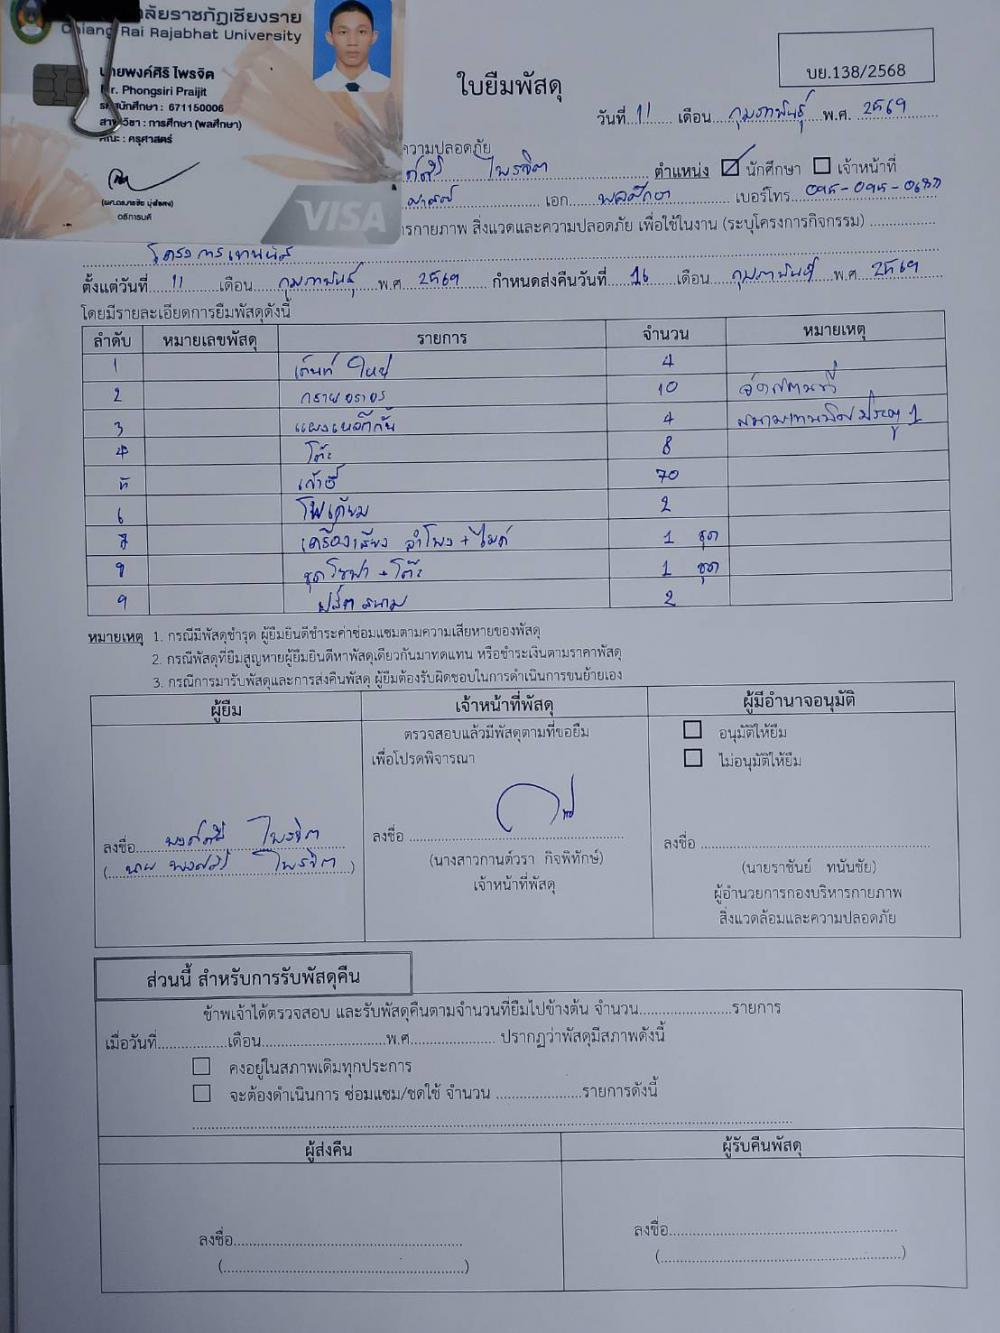 ลัยราชภัฏเชียงราย
Chiang Rai Rajabhat University
นายพงค์ศิริ ไพรจิต
Mr. Phongsiri Praijit
รหัสนักศึกษา : 671150006
สาขาวิชา : การศึกษา (พลศึกษา)
คณะ : ครุศาสตร์
อธิการบดี
VISA
บย.138/2568
ใบยืมพัสดุ
วันที่ 11 เดือน กุมภาพันธุ์ พ.ศ. 2569
ความปลอดภัย
ไพรจิต ตำแหน่ง ☑ นักศึกษา ☐ เจ้าหน้าที่
เอก พลศึกษา เบอร์โทร
รกายภาพ สิ่งแวดและความปลอดภัย เพื่อใช้ในงาน (ระบุโครงการกิจกรรม)
โครงการเทนนิส
ตั้งแต่วันที่ 11 เดือน กุมภาพันธุ์ พ.ศ 2569 กำหนดส่งคืนวันที่ 16 เดือน กุมภาพันธุ์ พ.ศ 2569
โดยมีรายละเอียดการยืมพัสดุดังนี้
ลำดับ หมายเลขพัสดุ รายการ จำนวน หมายเหตุ
1 เต็นท์ ใหญ่ 4
2 กรวยจราจร 10
3 แผงเหล็กกั้น 4 สนามเทนนิส ประตู 1
4 โต๊ะ 8
5 เก้าอี้ 70
6 โพเดียม 2
7 เครื่องเสียง ลำโพง + ไมค์ 1 ชุด
8 ชุดโซฟา + โต๊ะ 1 ชุด
9 2
หมายเหตุ 1. กรณีมีพัสดุชำรุด ผู้ยืมยินดีชำระค่าซ่อมแซมตามความเสียหายของพัสดุ
2. กรณีพัสดุที่ยืมสูญหายผู้ยืมยินดีหาพัสดุเดียวกันมาทดแทน หรือชำระเงินตามราคาพัสดุ
3. กรณีการมารับพัสดุและการส่งคืนพัสดุ ผู้ยืมต้องรับผิดชอบในการดำเนินการขนย้ายเอง
ผู้ยืม เจ้าหน้าที่พัสดุ ผู้มีอำนาจอนุมัติ
ตรวจสอบแล้วมีพัสดุตามที่ขอยืม
เพื่อโปรดพิจารณา
☐ อนุมัติให้ยืม
☐ ไม่อนุมัติให้ยืม
ลงชื่อ พงค์ศิริ ไพรจิต
(นาย พงค์ศิริ ไพรจิต)
ลงชื่อ
(นางสาวกานต์วรา กิจพิทักษ์)
เจ้าหน้าที่พัสดุ
ลงชื่อ
(นายราชันย์ ทนันชัย)
ผู้อำนวยการกองบริหารกายภาพ
สิ่งแวดล้อมและความปลอดภัย
ส่วนนี้ สำหรับการรับพัสดุคืน
ข้าพเจ้าได้ตรวจสอบ และรับพัสดุคืนตามจำนวนที่ยืมไปข้างต้น จำนวน........................รายการ
เมื่อวันที่..................เดือน................................พ.ศ...................... ปรากฏว่าพัสดุมีสภาพดังนี้
☐ คงอยู่ในสภาพเดิมทุกประการ
☐ จะต้องดำเนินการ ซ่อมแซม/ชดใช้ จำนวน ......................รายการดังนี้
ผู้ส่งคืน ผู้รับคืนพัสดุ
ลงชื่อ............................................................ ลงชื่อ............................................................
(................................................................) (................................................................)